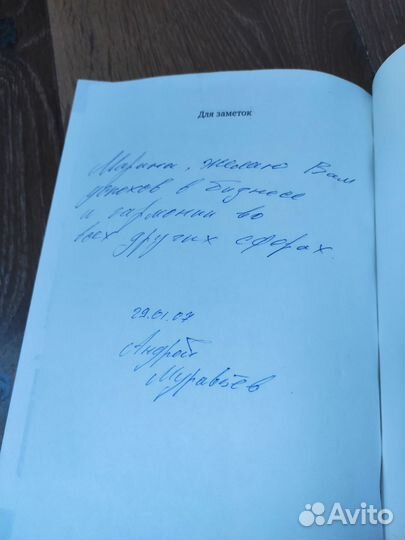 Для заметок
Марина, желаю Вам
успехов в бизнесе
и гармонии во
всех других сферах.
29.01.07
Андрей
Муравьёв
Avito